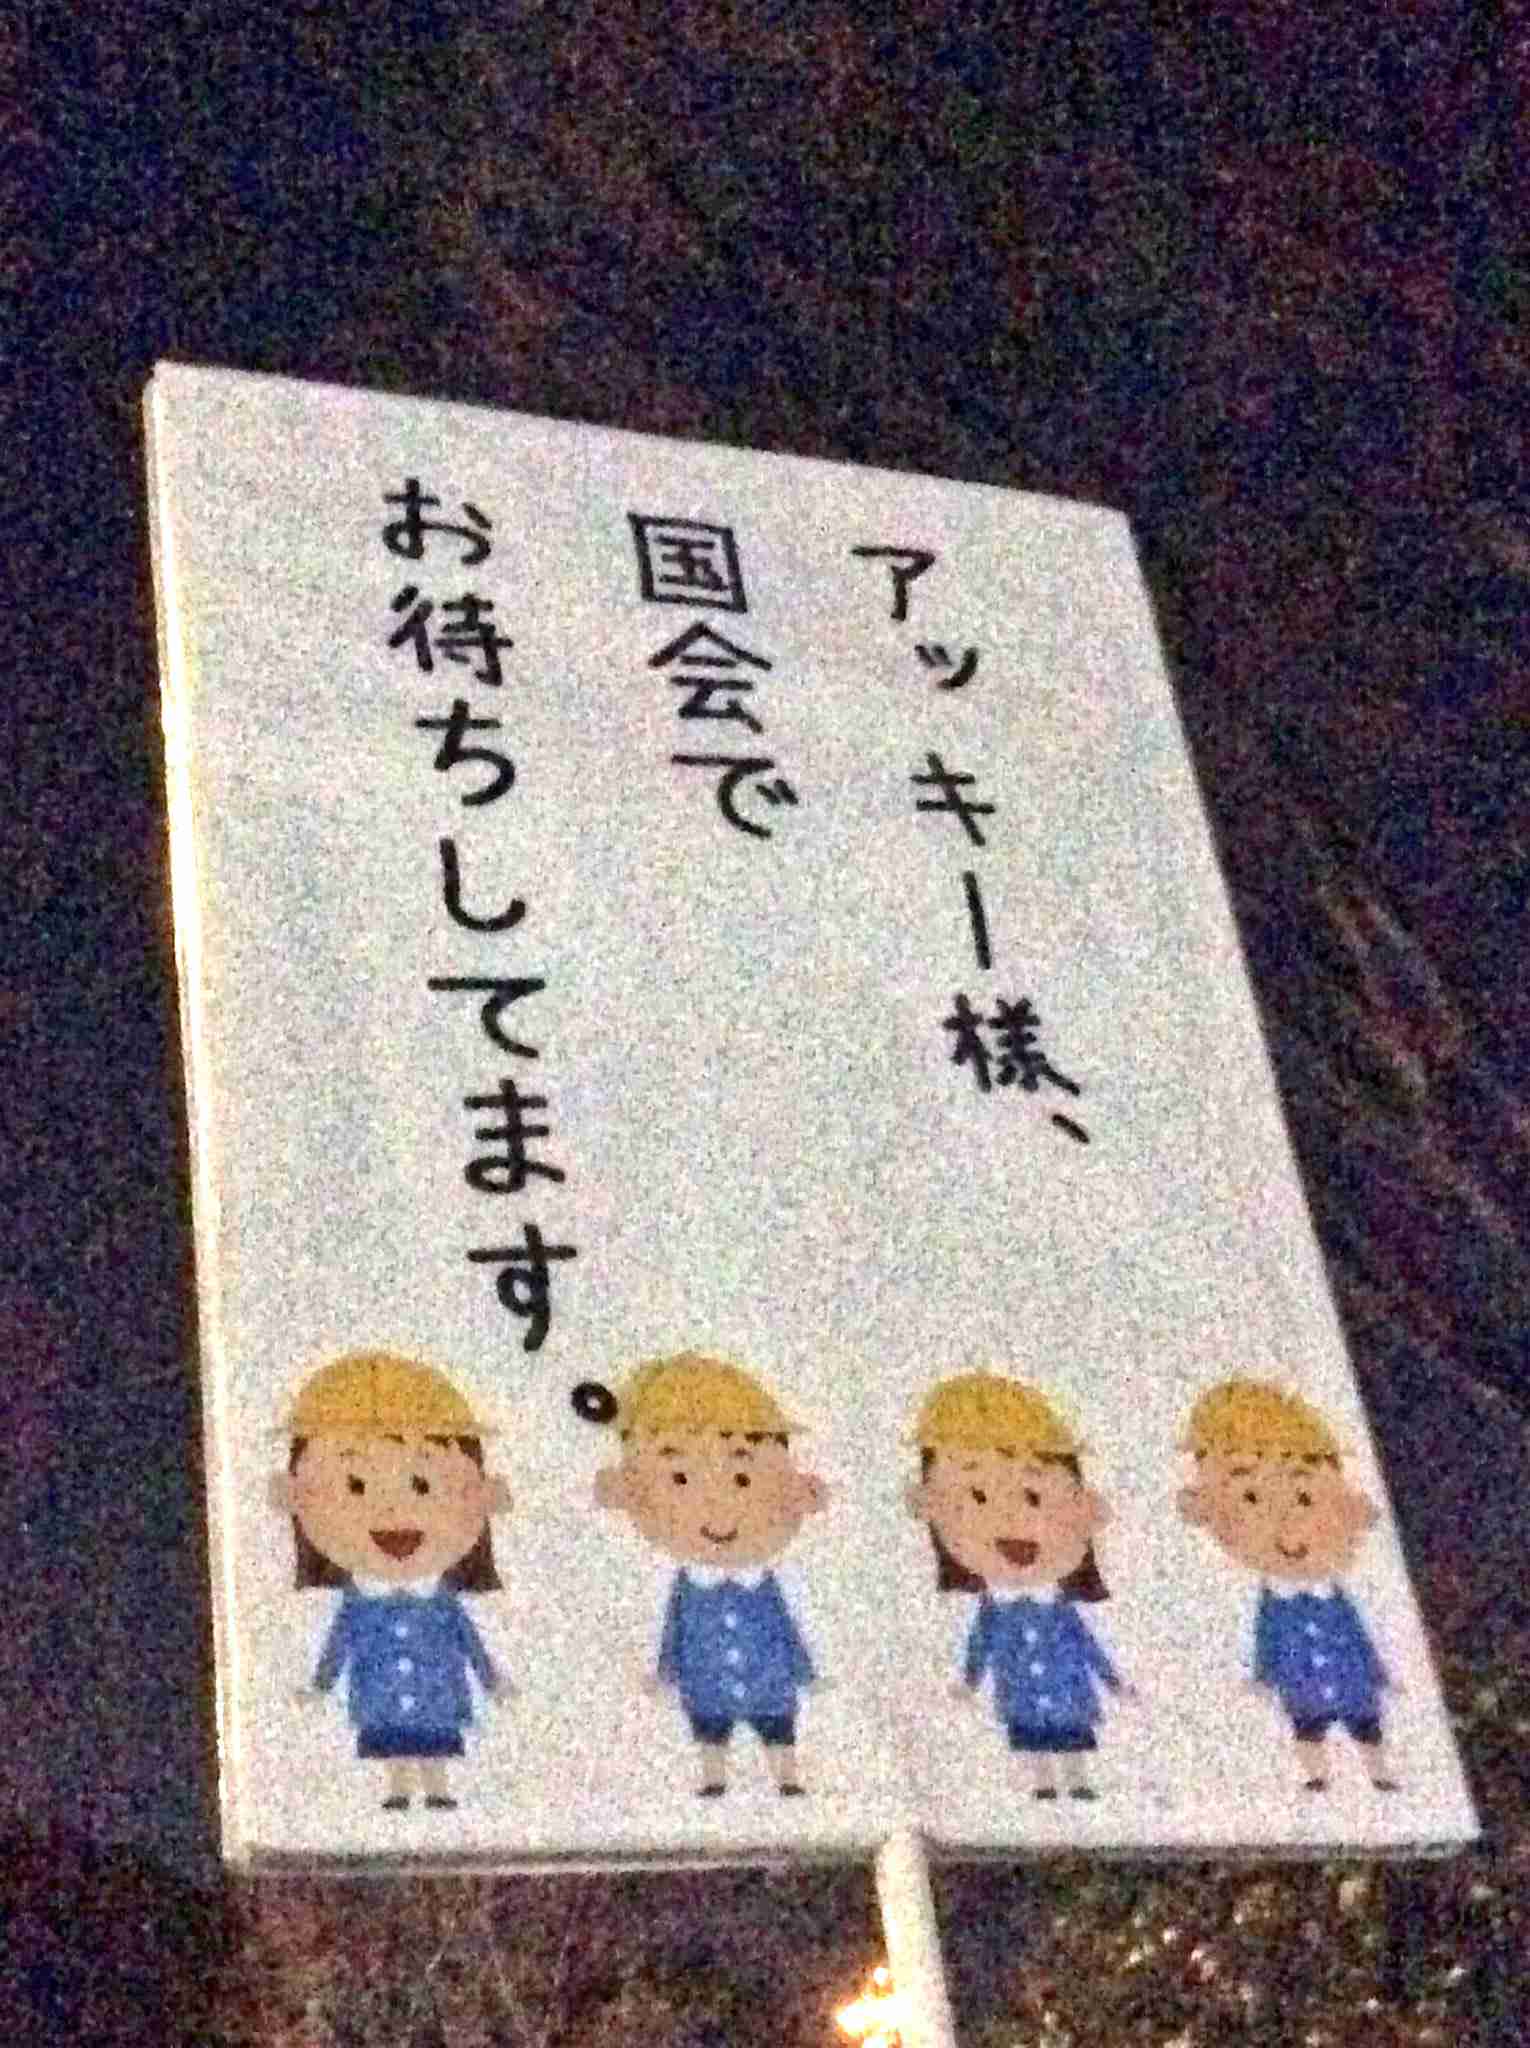 アッキー様、
国会で
お待ちしてます。